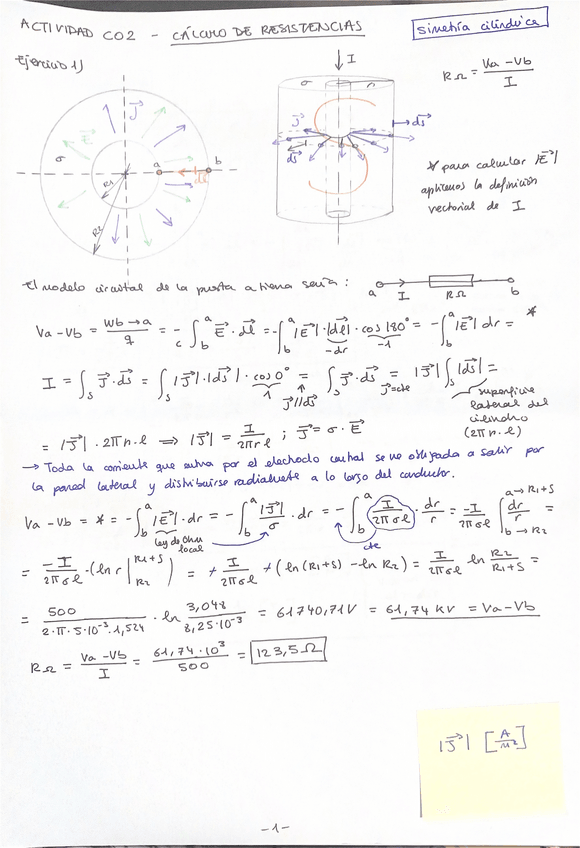 ACTIVIDAD C02 - CÁLCULO DE RESISTENCIAS
simetría cilíndrica
Ejercicio 1)
RΩ = (Va - Vb) / I
J⃗
E⃗
σ
a
b
dl⃗
R1
R2
I
σ
r
J⃗
ds⃗
ds⃗
* para calcular |E⃗|
aplicamos la definición
vectorial de I
El modelo circuital de la puesta a tierra sería:
a I RΩ b
Va - Vb = Wb→a / q = - ∫_b^a E⃗ · dl⃗ = - ∫_b^a |E⃗| · |dl⃗| · cos 180° = - ∫_b^a |E⃗| dr = *
-dr
-1
I = ∫_S J⃗ · ds⃗ = ∫_S |J⃗| · |ds⃗| · cos 0° = ∫_S J⃗ · ds⃗ = |J⃗| ∫_S |ds⃗| =
1
J⃗ // ds⃗
J⃗ = cte
superficie
lateral del
cilindro
(2πr·l)
= |J⃗| · 2πr·l ⟹ |J⃗| = I / 2πrl ; J⃗ = σ · E⃗
→ Toda la corriente que entra por el electrodo central se ve obligada a salir por
la pared lateral y distribuirse radialmente a lo largo del conductor.
Va - Vb = * = - ∫_b^a |E⃗| · dr = - ∫_b^a |J⃗| / σ · dr = - ∫_b^a I / 2πσl · dr / r = -I / 2πσl ∫_{b→R2}^{a→R1+S} dr / r =
ley de Ohm
local
cte
= -I / 2πσl · (ln r |_{R2}^{R1+S} = + I / 2πσl + (ln(R1+S) - ln R2) = I / 2πσl ln R2 / (R1+S) =
= 500 / 2·π·5·10⁻³·1,524 · ln 3,048 / 8,25·10⁻³ = 61740,71V = 61,74 KV = Va - Vb
RΩ = (Va - Vb) / I = 61,74·10³ / 500 = 123,5Ω
|J⃗| [A/m²]
-1-